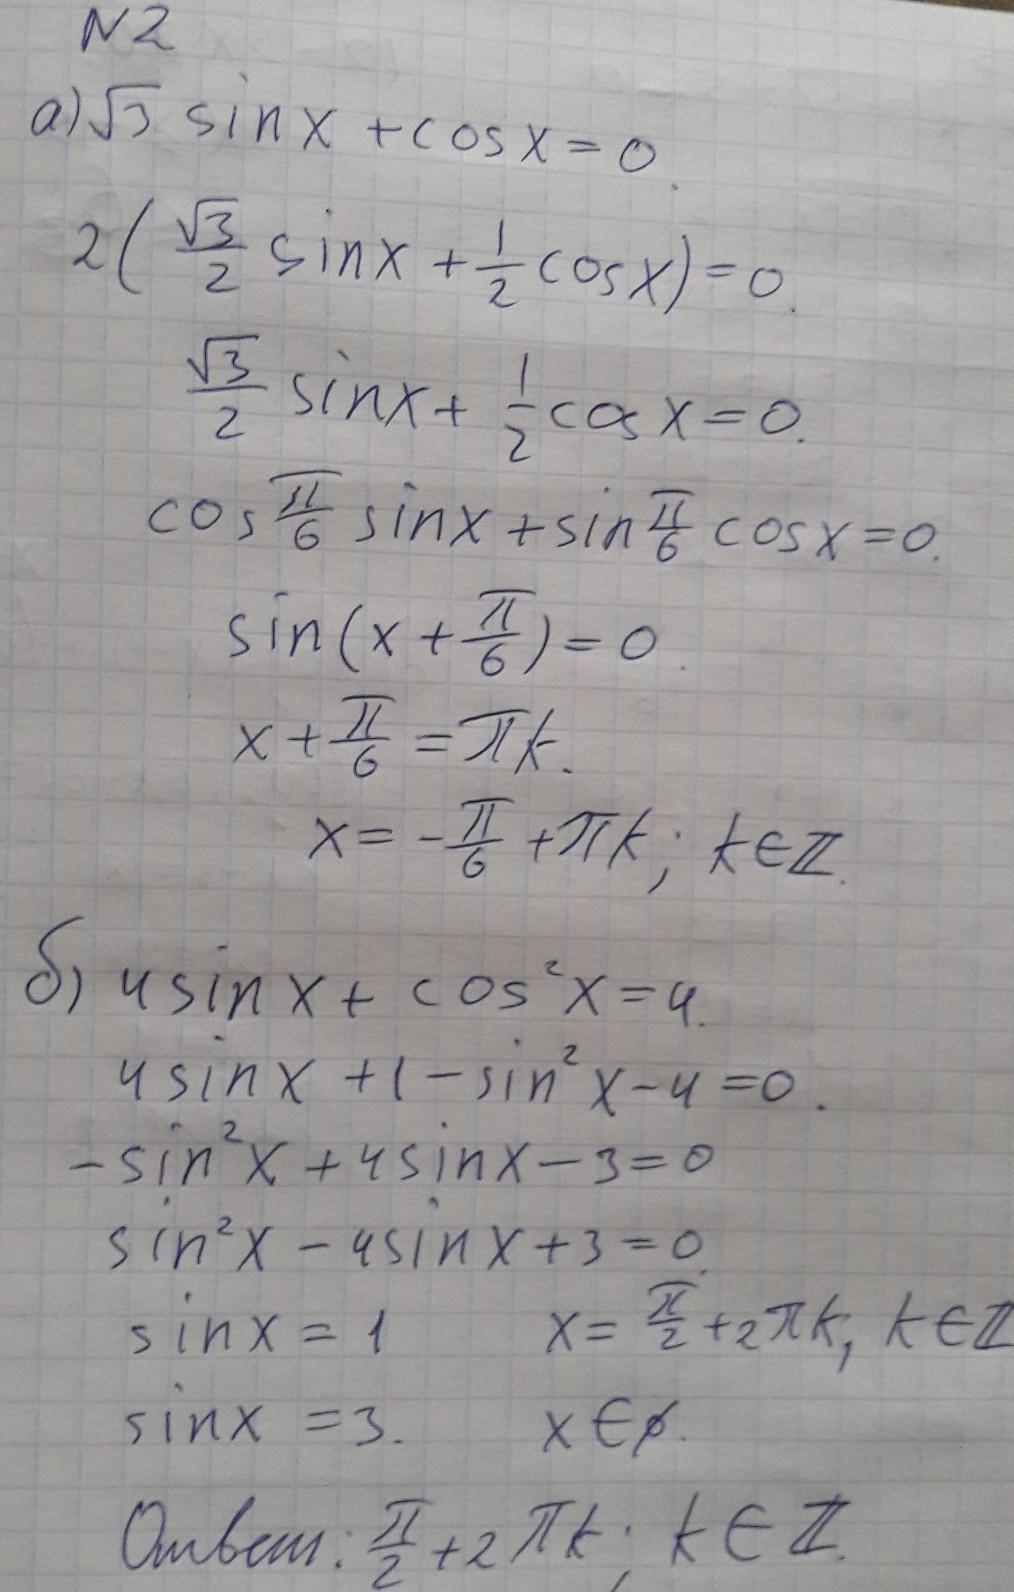 N2
а) √3 sinx + cosx = 0.
2(√3/2 sinx + 1/2 cosx) = 0.
√3/2 sinx + 1/2 cosx = 0.
cos π/6 sinx + sin π/6 cosx = 0.
sin(x + π/6) = 0.
x + π/6 = πk.
x = -π/6 + πk; k∈ℤ.
б) 4sinx + cos²x = 4.
4sinx + 1 - sin²x - 4 = 0.
-sin²x + 4sinx - 3 = 0
sin²x - 4sinx + 3 = 0.
sinx = 1 x = π/2 + 2πk, k∈ℤ
sinx = 3. x∈∅.
Ответ: π/2 + 2πk; k∈ℤ.